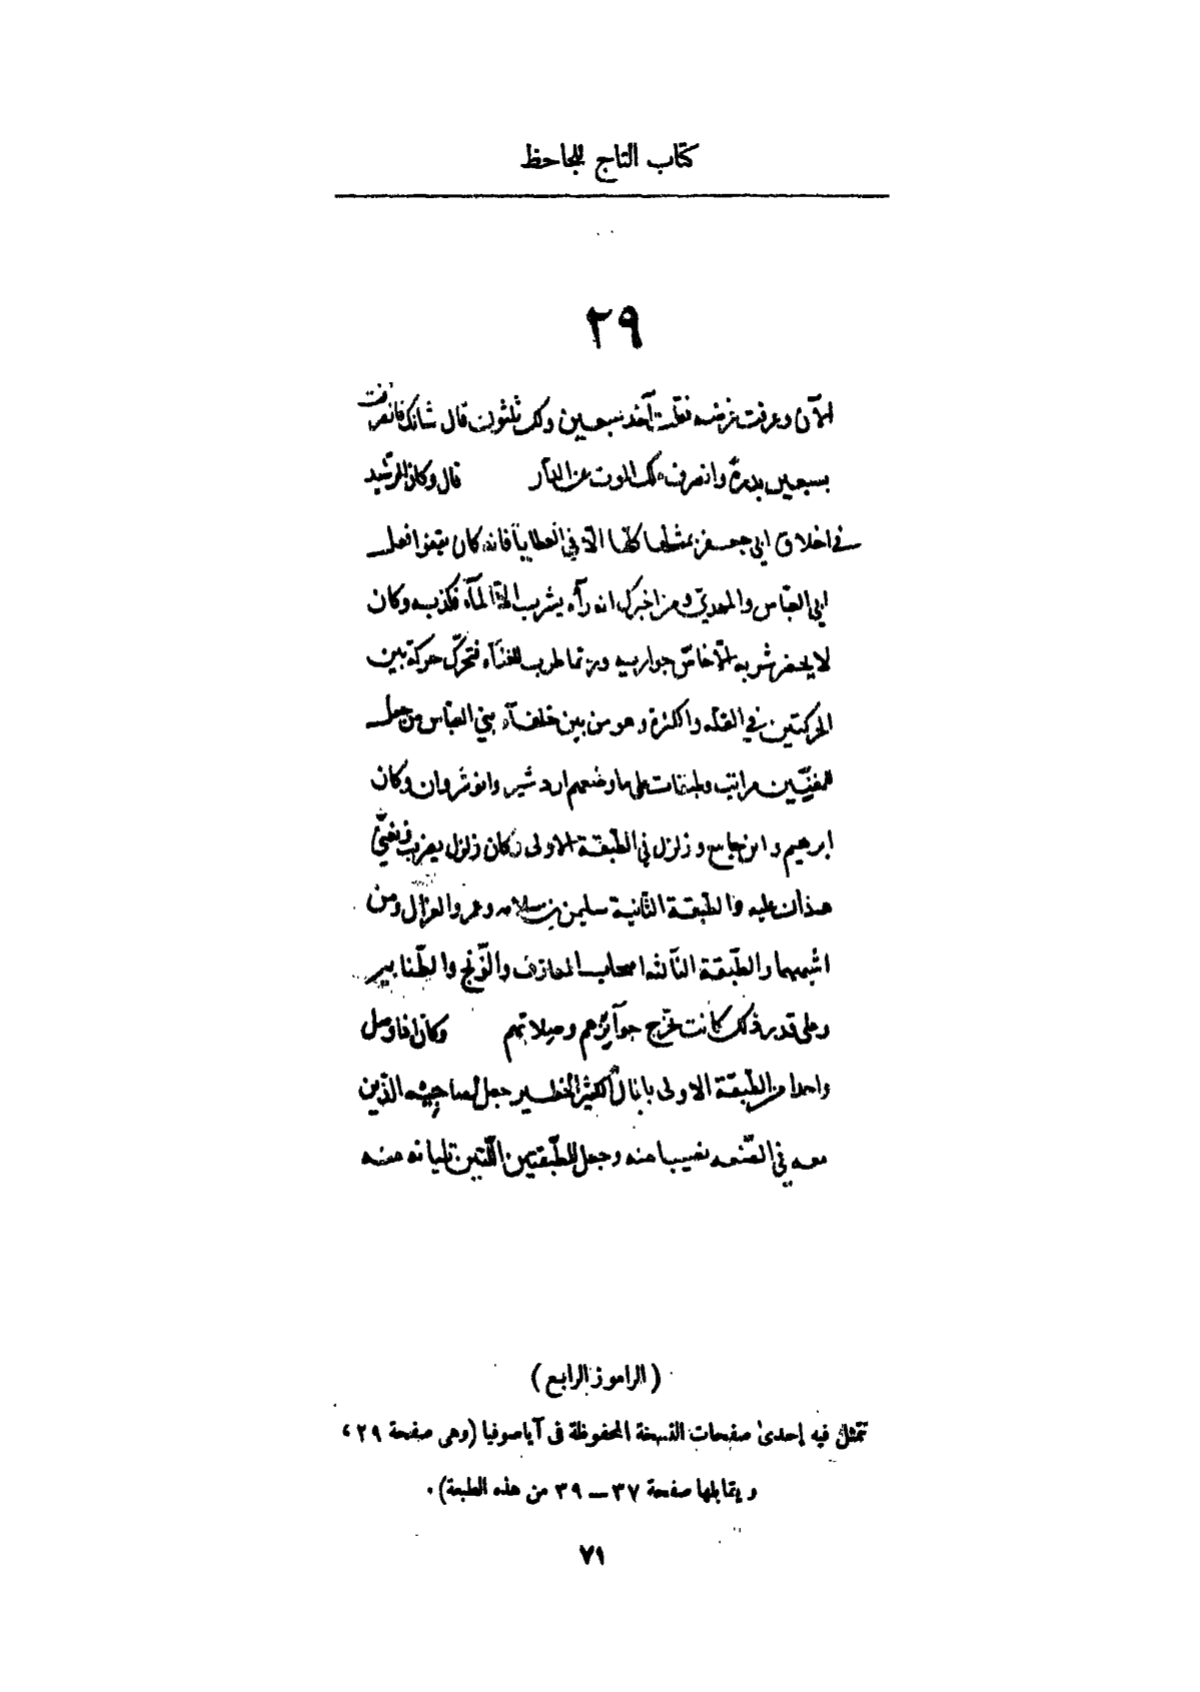 كتاب التاج للجاحظ
٢٩
الآن وعرفت غرضه فقلت آخذ سبعين ولك ثلثون قال شانك فانصرفت
بسبعين بدرة وانصرف ملك الموت عن الدار قال وكان الرشيد
في اخلاق ابي جعفر يمتثلها كلها الا في العطايا فانه كان يقفوا فعل
ابي العباس والمهدي ومن اخبرك انه رآه يشرب الا المآء فكذبه وكان
لا يحضر شربه الا خاص جواريه وربما طرب للغنآء فتحرك حركة بين
الحركتين في القلة والكثرة وهو من بين خلفآء بني العباس من جعل
للمغنيين مراتب وطبقات على ما وضعهم اردشير وانوشروان وكان
ابرهيم وابن جامع وزلزل في الطبقة الاولى وكان زلزل يضرب ويغني
هذان عليه والطبقة الثانية سليمن بن سلام وعمرو الغزال ومن
اشبههما والطبقة الثالثة اصحاب المعازف والونج والطنابير
وعلى قدر ذلك كانت تخرج جوآيزهم وصلاتهم وكان اذا وصل
واحدا من الطبقة الاولى بالمال الكثير الخطير جعل لصاحبيه الذين
معه في الصنعه نصيبا منه وجعل للطبقتين اللتين تليانه منه
(الراموز الرابع)
تتمثل فيه إحدى صفحات النسخة المحفوظة فى آياصوفيا (وهى صفحة ٢٩،
ويقابلها صفحة ٣٧ — ٣٩ من هذه الطبعة).
٧١